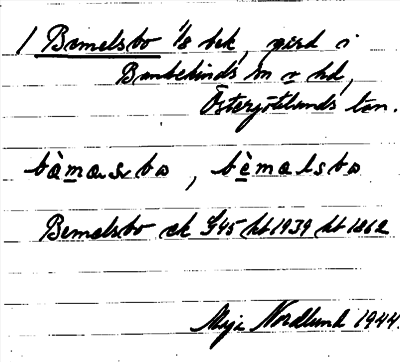 / Bemelsbo 1/8 bek, gård i
Bankekinds sn o hd,
Östergötlands län.
bèmæsbo, bèmalsbo
Bemelsbo ek G45 kt 1939 kt 1862
Maja Nordlund 1944.